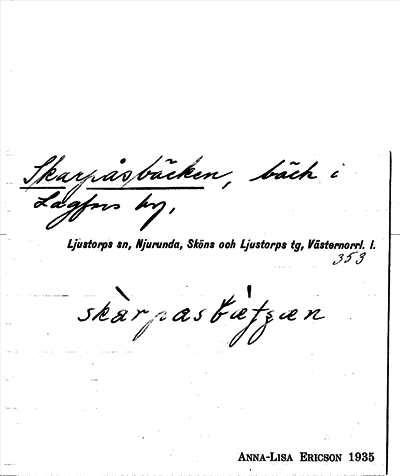 Skarpåsbäcken, bäck i
Lagfors by,
Ljustorps sn, Njurunda, Sköns och Ljustorps tg, Västernorrl. l.
353
ANNA-LISA ERICSON 1935